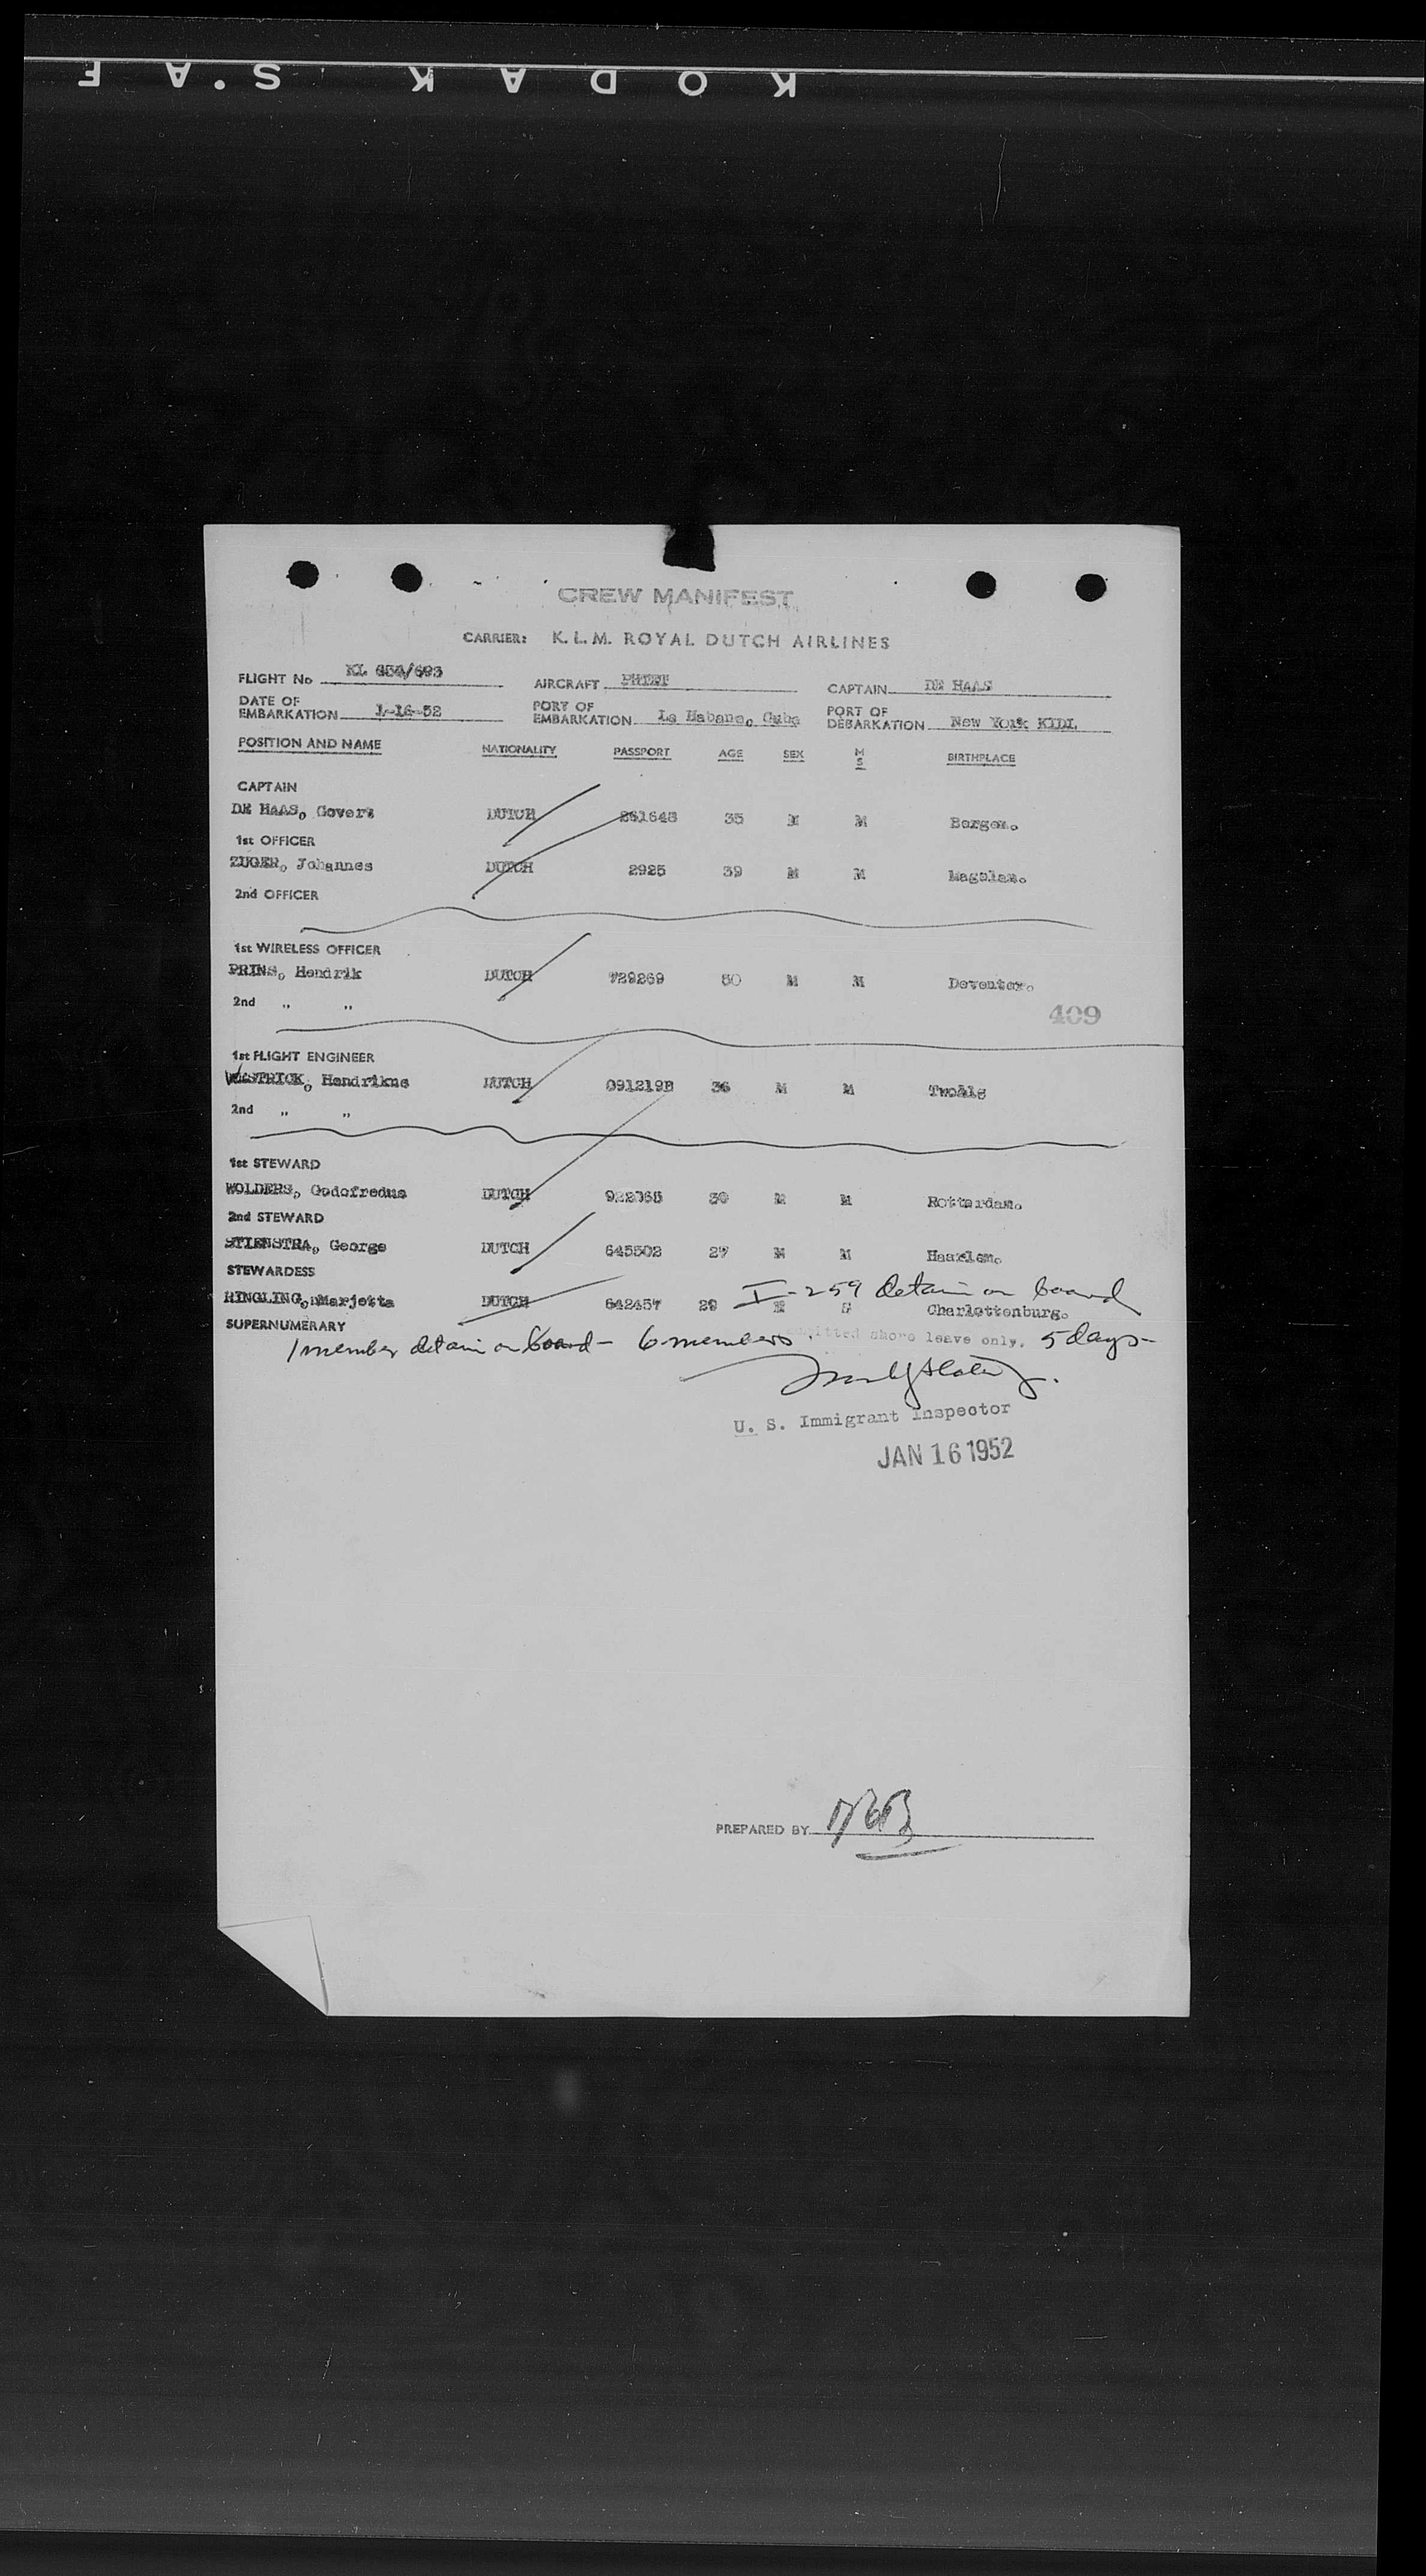 KODAK S'AF
CREW MANIFEST
CARRIER: K. L. M. ROYAL DUTCH AIRLINES
FLIGHT No KL 654/693 AIRCRAFT CAPTAIN DE HAAS
DATE OF EMBARKATION 1-16-52 PORT OF EMBARKATION La Habana, Cuba PORT OF DEBARKATION New York KIDL
POSITION AND NAME NATIONALITY PASSPORT AGE SEX M S BIRTHPLACE
CAPTAIN
DE HAAS, Govert DUTCH 261645 35 M M Bergen.
1st OFFICER
ZUGER, Johannes DUTCH 2925 39 M M Magelan.
2nd OFFICER
1st WIRELESS OFFICER
PRINS, Hendrik DUTCH 729269 30 M M Deventer.
2nd " "
409
1st FLIGHT ENGINEER
WESTRICK, Hendrikus DUTCH 091219B 36 M M
2nd " "
1st STEWARD
WOLDERS, Godofredus DUTCH 922065 30 M M Rotterdam.
2nd STEWARD
STIENSTRA, George DUTCH 645502 27 M M Haarlem.
STEWARDESS
I-259 detain on board
RINGLING, Marjetta DUTCH 642457 29 F S Charlottenburg.
SUPERNUMERARY
1 member detain on board - 6 members admitted shore leave only, 5 days-
U. S. Immigrant Inspector
JAN 16 1952
PREPARED BY